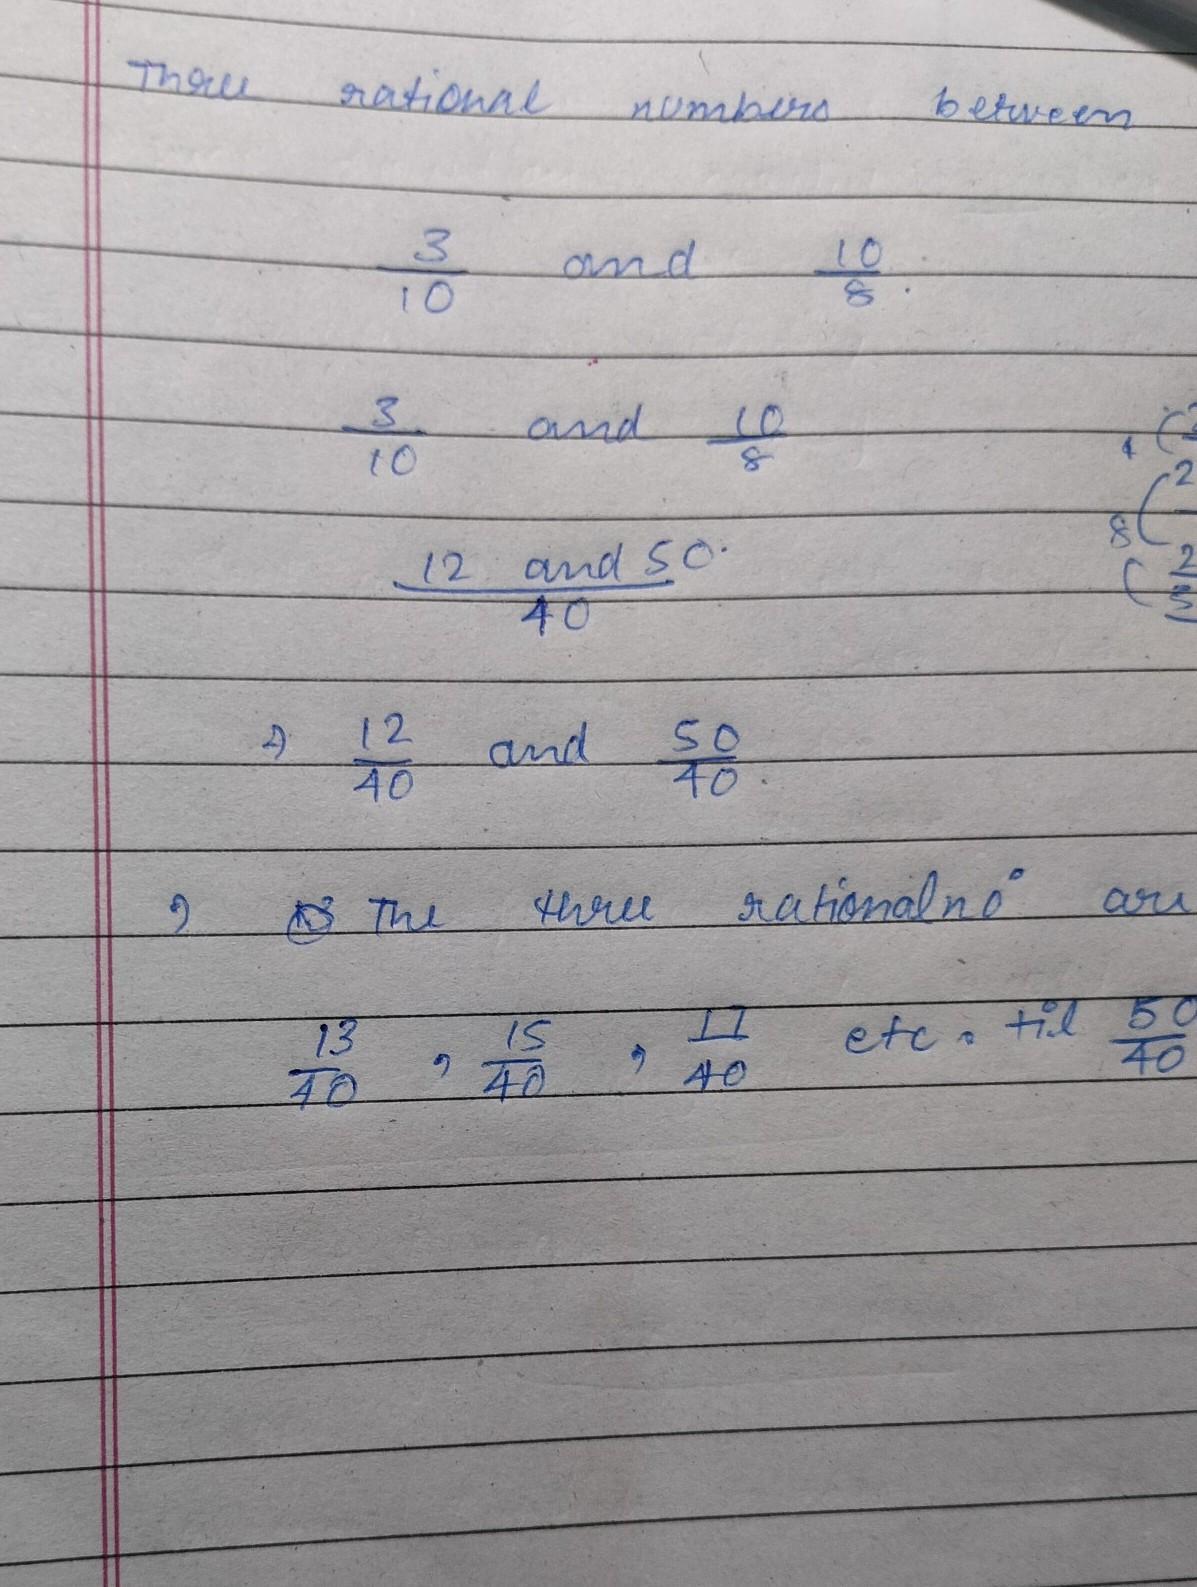 Three rational numbers between
3/10 and 10/8.
3/10 and 10/8
12 and 50/40
12/40 and 50/40.
The three rational no° are
13/40, 15/40, 17/40 etc. til 50/40
4 (
8 ( 2
( 2/5